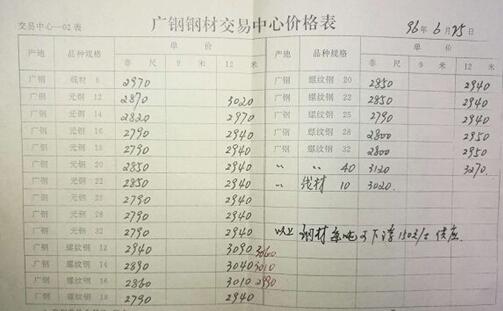 交易中心—02表
广钢钢材交易中心价格表
96年6月25日
产地 品种规格 单价 产地 品种规格 单价
非尺 9米 12米 非尺 9米 12米
广钢 线材 2970 广钢 螺纹钢 20 2850 2940
广钢 元钢 12 2870 3020 广钢 螺纹钢 22 2850 2940
广钢 元钢 14 2820 2970 广钢 螺纹钢 25 2790 2940
广钢 元钢 16 2790 2940 广钢 螺纹钢 28 2800 2950
广钢 元钢 18 2790 2940 广钢 螺纹钢 32 2800 2950
广钢 元钢 20 2850 2940 〃 〃 40 3120 3270
广钢 元钢 22 2850 2940 〃 线材 10 3020
广钢 元钢 25 2790 2940
广钢 元钢 28 2790 2940
广钢 元钢 32 2790 2940 以上 钢材每吨可下浮150元/吨供应
广钢 螺纹钢 12 2940 3090 3060
广钢 螺纹钢 14 2890 3040 3010
广钢 螺纹钢 16 2860 3010 2990
广钢 螺纹钢 18 2790 2940